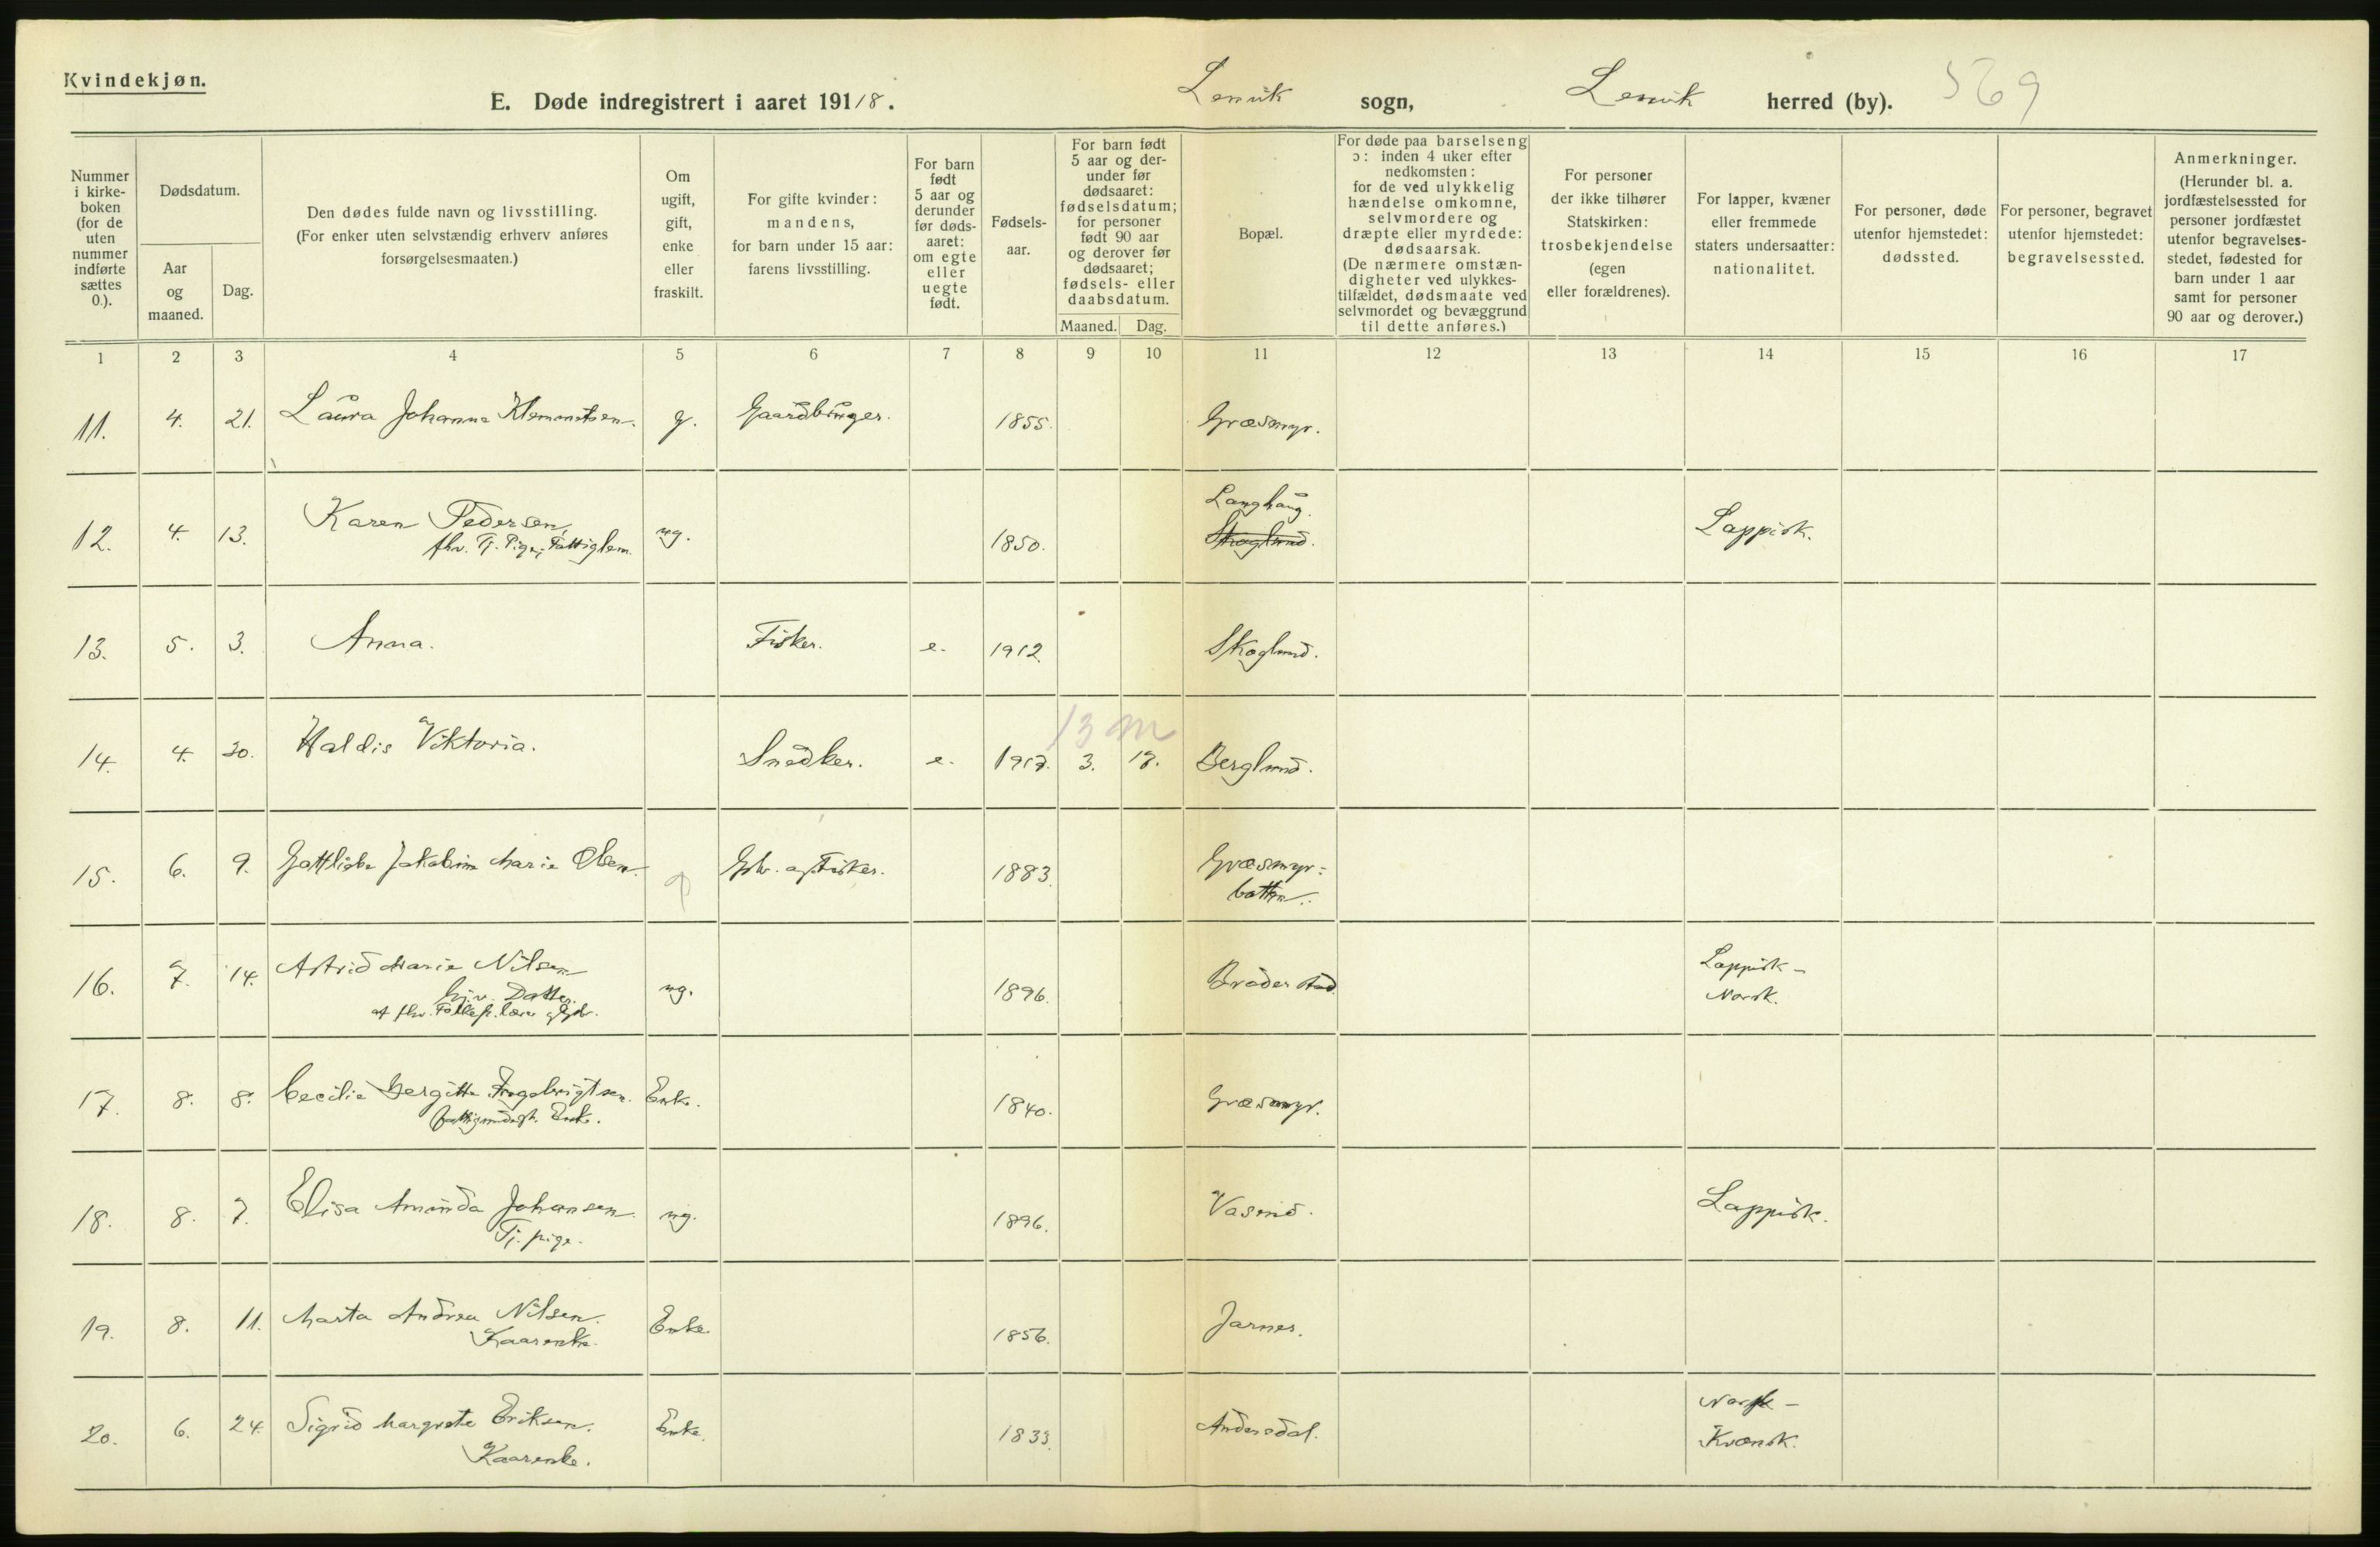 Kvindekjøn.
E. Døde indregistrert i aaret 19118. Lenvik sogn, Lenvik herred (by). 569
Nummer i kirke-boken (for de uten nummer indførte sættes 0.).
Dødsdatum.
Aar og maaned.
Dag.
Den dødes fulde navn og livsstilling.
(For enker uten selvstændig erhverv anføres
forsørgelsesmaaten.)
Om ugift, gift, enke eller fraskilt.
For gifte kvinder:
mandens,
for barn under 15 aar:
farens livsstilling.
For barn født 5 aar og derunder før døds-aaret: om egte eller uegte født.
Fødsels-aar.
For barn født 5 aar og der-under før dødsaaret: fødselsdatum; for personer født 90 aar og derover før dødsaaret; fødsels- eller daabsdatum.
Maaned. Dag.
Bopæl.
For døde paa barselseng
ɔ: inden 4 uker efter
nedkomsten:
for de ved ulykkelig
hændelse omkomne,
selvmordere og
dræpte eller myrdede:
dødsaarsak.
(De nærmere omstæn-
digheter ved ulykkes-
tilfældet, dødsmaate ved
selvmordet og bevæggrund
til dette anføres.)
For personer
der ikke tilhører
Statskirken:
trosbekjendelse
(egen
eller forældrenes).
For lapper, kvæner
eller fremmede
staters undersaatter:
nationalitet.
For personer, døde
utenfor hjemstedet:
dødssted.
For personer, begravet
utenfor hjemstedet:
begravelsessted.
Anmerkninger.
(Herunder bl. a.
jordfæstelsessted for
personer jordfæstet
utenfor begravelses-
stedet, fødested for
barn under 1 aar
samt for personer
90 aar og derover.)
1 2 3 4 5 6 7 8 9 10 11 12 13 14 15 16 17
11. 4. 21. Laura Johanna Klemmetsen. g. Gaardbruger. 1855. Græsmyr.
12. 4. 13. Karen Pedersen, ug. 1850. Langhaug. Lappisk.
fhv. Tj. Pige, Fattiglem. Skoglund.
13. 5. 3. Anna. Fisker. e. 1912. Skoglund.
13 m
14. 4. 30. Haldis Viktoria. Snedker. e. 1917. 3. 17. Berglund.
15. 6. 9. Jakobine Marie Olsen. g Gbr. og Fisker. 1883. Græsmyr=
botten.
16. 7. 14. Astrid Marie Nilsen ug. 1896. Brøderstad. Lappisk-
Datter Norsk.
af fhv.
17. 8. 8. Cecilie Bergitte Ingebrigtsen. Enke. 1840. Græsmyr.
Enke.
18. 8. 7. Elisa Aminda Johansen ug. 1896. Vasmo. Lappisk.
Tj. pige.
19. 8. 11. Marta Andrea Nilsen. Enke. 1856. Jarnes.
Kaarenke.
20. 6. 24. Sigrid Margrete Eriksen. Enke. 1833. Andersdal. Norsk-
Kaarenke. Kvænsk.